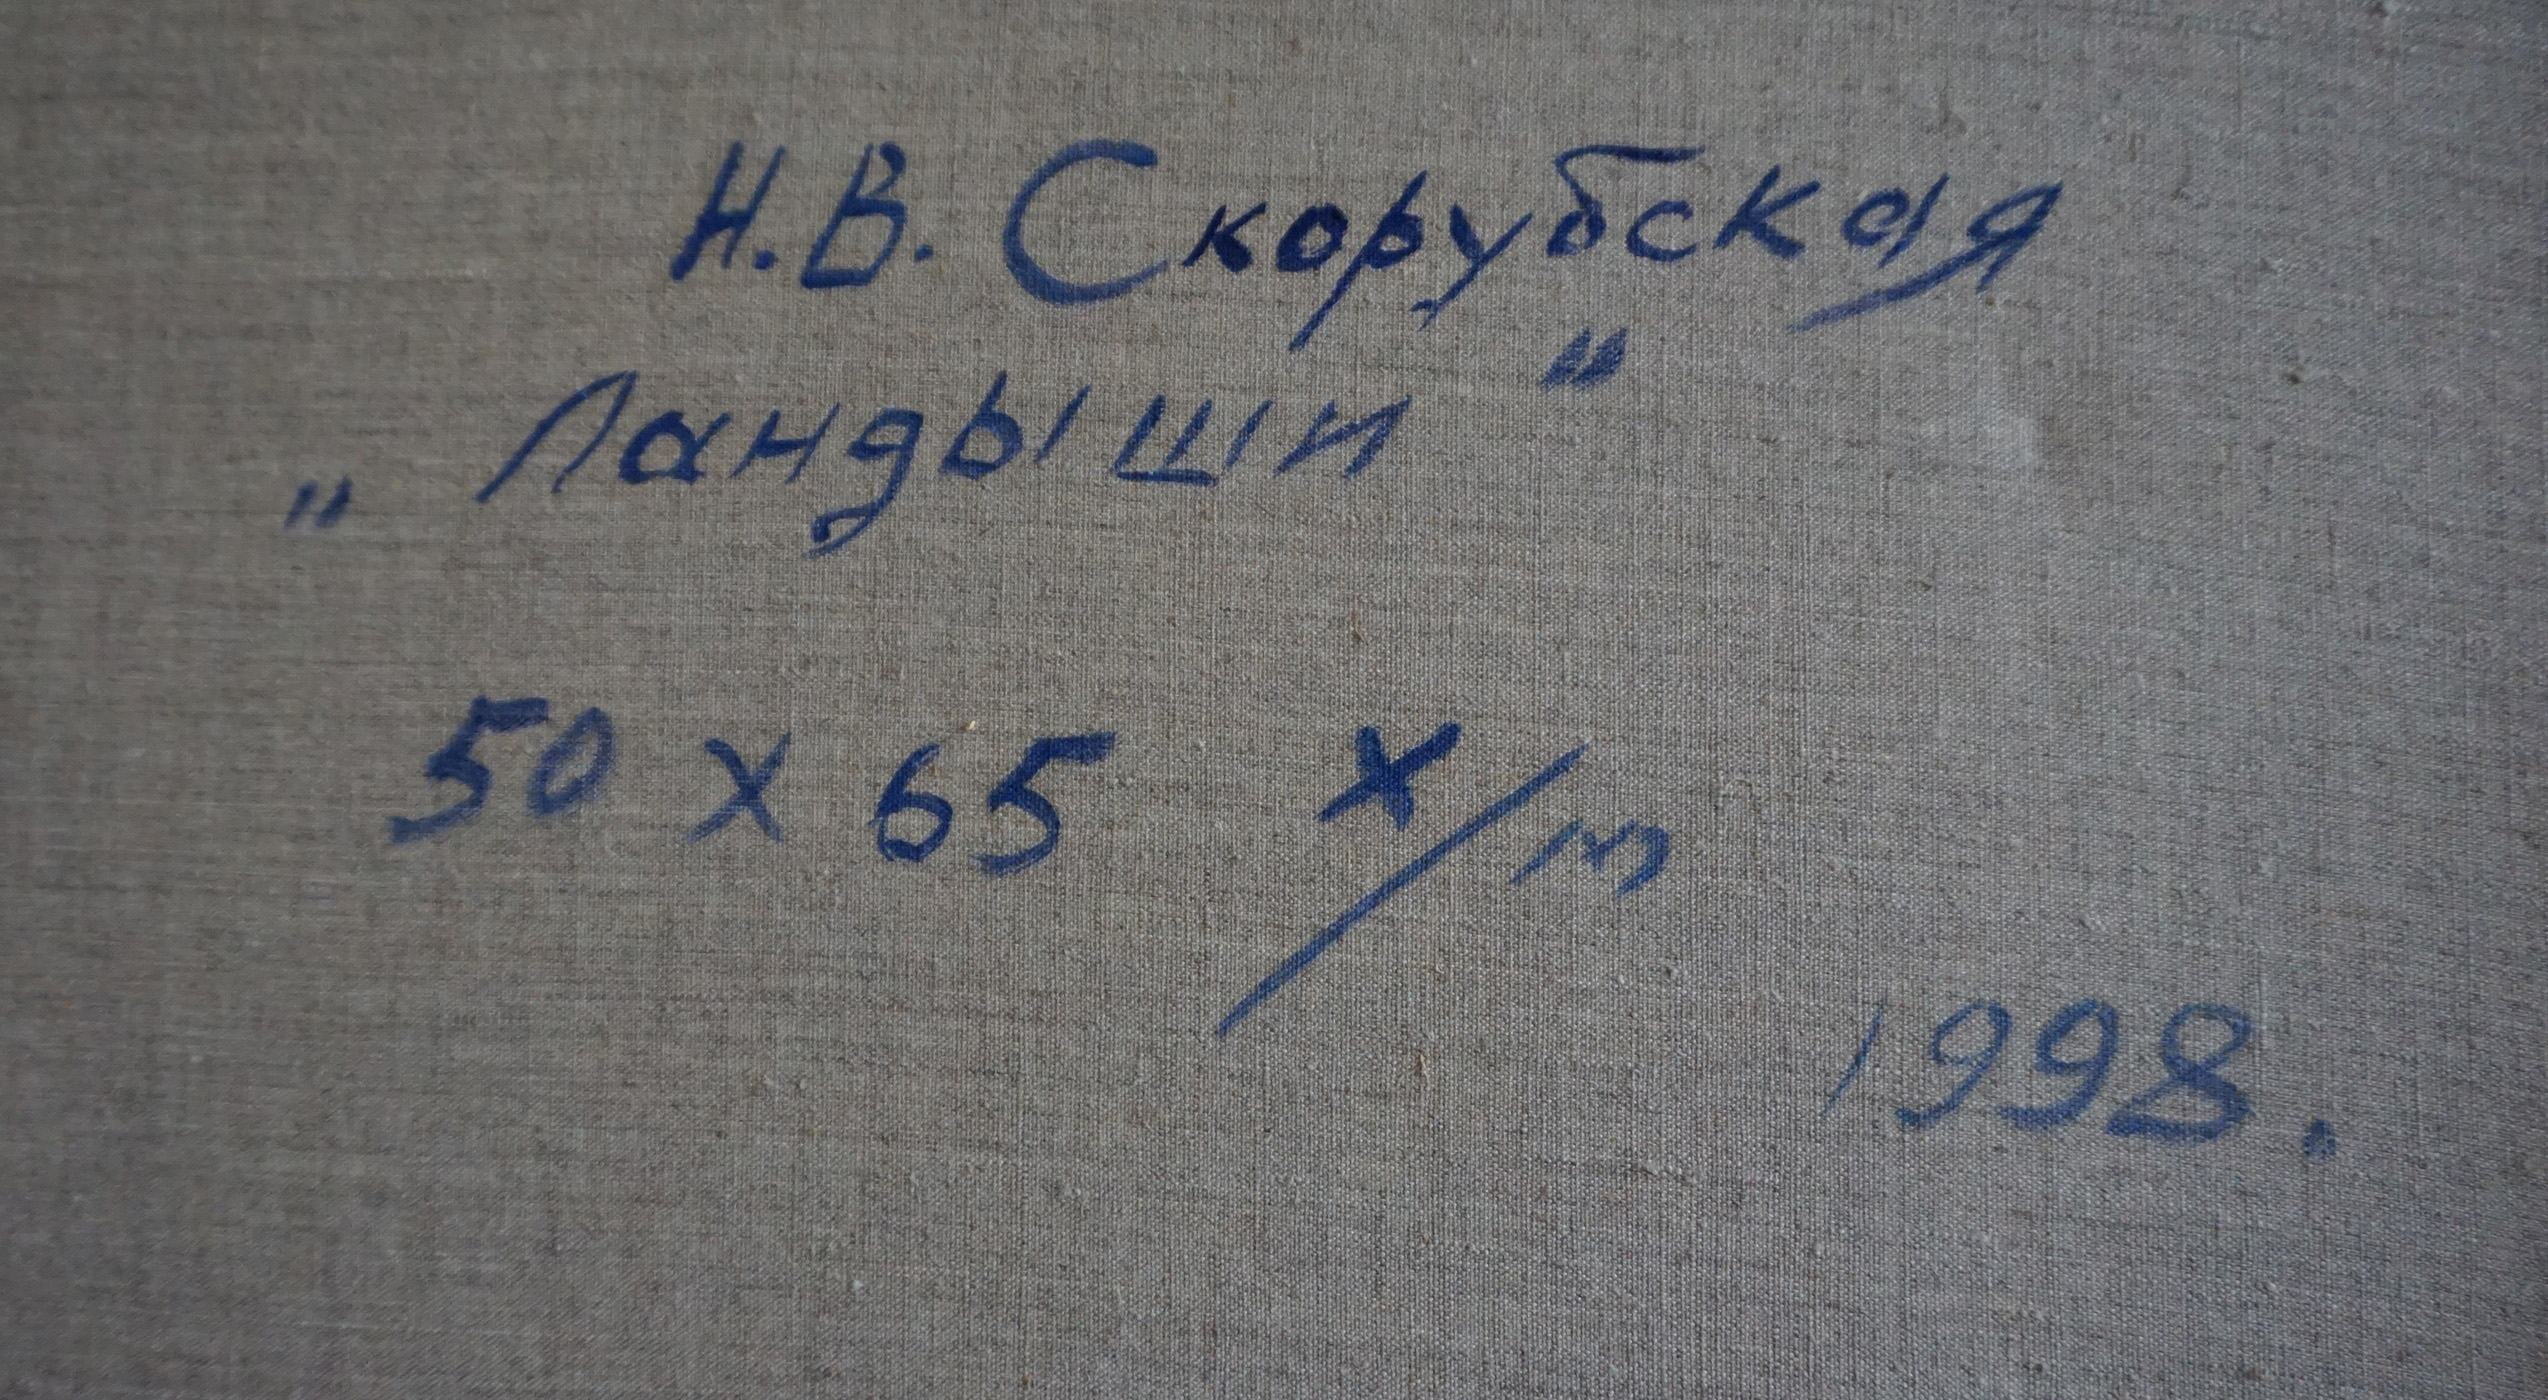 Н.В. Скорубская
„Ландыши"
50 х 65 х/м
1998.